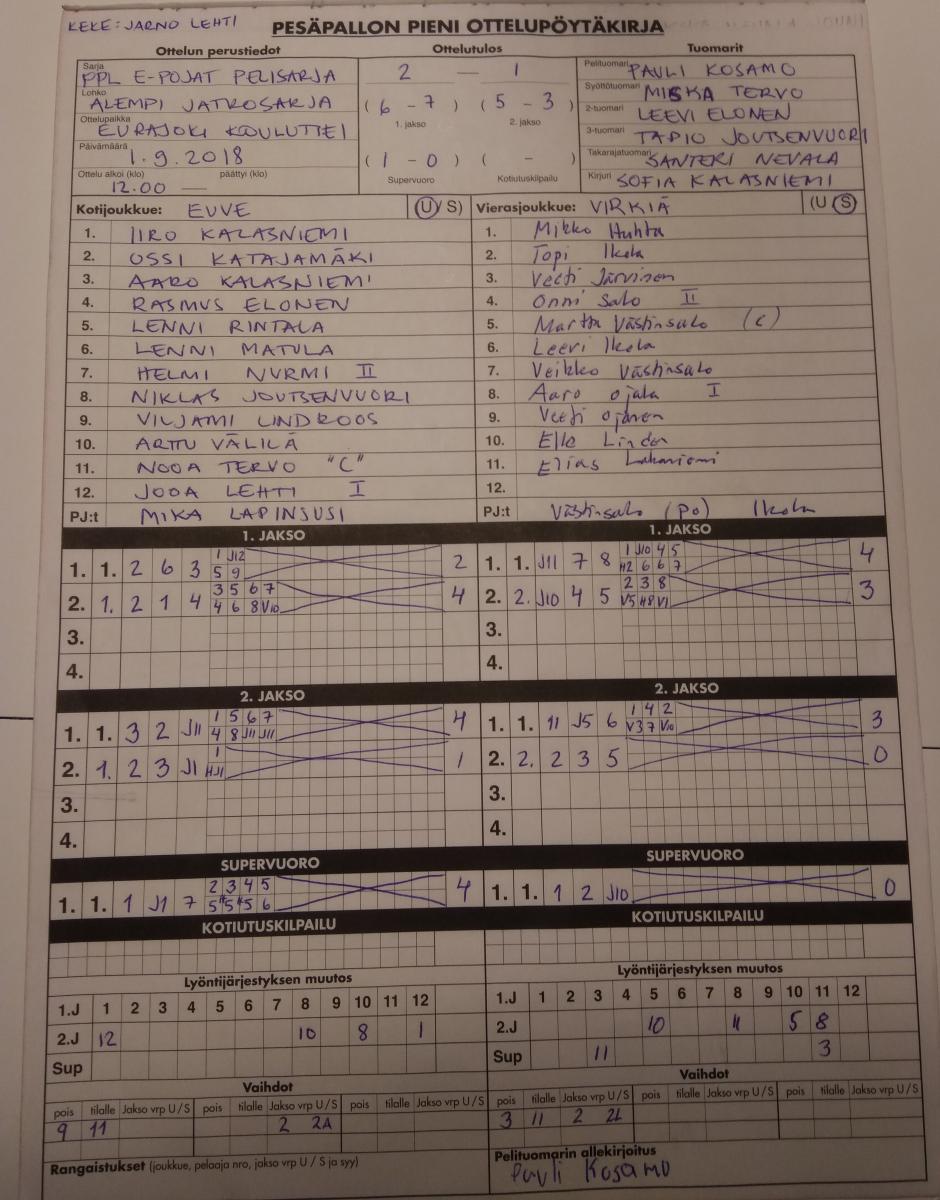 KEKE: JARNO LEHTI
PESÄPALLON PIENI OTTELUPÖYTÄKIRJA
Ottelun perustiedot Ottelutulos Tuomarit
Sarja PPL E-POJAT PELISARJA
Lohko ALEMPI JATKOSARJA
Ottelupaikka EURAJOKI
Päivämäärä 1.9.2018
Ottelu alkoi (klo) päättyi (klo)
12.00 —
2 — 1
(6 - 7) (5 - 3)
1. jakso 2. jakso
(1 - 0) ( - )
Supervuoro Kotiutuskilpailu
Pelituomari PAULI KOSAMO
Syöttötuomari MISKA TERVO
2-tuomari LEEVI ELONEN
3-tuomari TAPIO JOUTSENVUORI
Takarajatuomari SANTERI NEVALA
Kirjuri SOFIA KALASNIEMI
Kotijoukkue: EUVE (U/S)
1. IIRO KALASNIEMI
2. OSSI KATAJAMÄKI
3. AARO KALASNIEMI
4. RASMUS ELONEN
5. LENNI RINTALA
6. LENNI MATULA
7. HELMI NURMI II
8. NIKLAS JOUTSENVUORI
9. VILJAMI LINDROOS
10. ARTTU VÄLILÄ
11. NOOA TERVO "C"
12. JOOA LEHTI I
PJ:t MIKA LAPINSUSI
Vierasjoukkue: VIRKIÄ (U S)
1. Mikko Huhta
2. Topi Ikola
3. Veeti Järvinen
4. Onni Salo II
5. Martta Västinsalo (c)
6. Leevi Ikola
7. Veikko Västinsalo
8. Aaro Ojala I
9. Veeti Ojanen
10. Elle Linden
11. Elias
12.
PJ:t Västinsalo (PO) Ikola
1. JAKSO
1. 1. 2 6 3 1 J12 2
5 9
2. 1. 2 1 4 3 5 6 7 4
4 6 8 V10
3.
4.
1. JAKSO
1. 1. J11 7 8 1 J10 4 5 4
H2 6 6 7
2. 2. J10 4 5 2 3 8 3
V5 H8 V1
3.
4.
2. JAKSO
1. 1. 3 2 J11 1 5 6 7 4
4 8 J11 J11
2. 1. 2 3 J1 1 1
HJ1
3.
4.
2. JAKSO
1. 1. 11 J5 6 1 4 2 3
V3 7 V10
2. 2. 2 3 5 0
3.
4.
SUPERVUORO
1. 1. 1 J1 7 2 3 4 5 4
SUPERVUORO
1. 1. 1 2 J10 0
KOTIUTUSKILPAILU
KOTIUTUSKILPAILU
Lyöntijärjestyksen muutos
1.J 1 2 3 4 5 6 7 8 9 10 11 12
2.J 12 10 8 1
Sup
Lyöntijärjestyksen muutos
1.J 1 2 3 4 5 6 7 8 9 10 11 12
2.J 10 11 5 8
Sup 11 3
Vaihdot
pois tilalle Jakso vrp U/S pois tilalle Jakso vrp U/S pois tilalle Jakso vrp U/S
9 11 2 2A
Vaihdot
pois tilalle Jakso vrp U/S pois tilalle Jakso vrp U/S pois tilalle Jakso vrp U/S
3 11 2 2L
Rangaistukset (joukkue, pelaaja nro, jakso vrp U / S ja syy)
Pelituomarin allekirjoitus
Pauli Kosamo